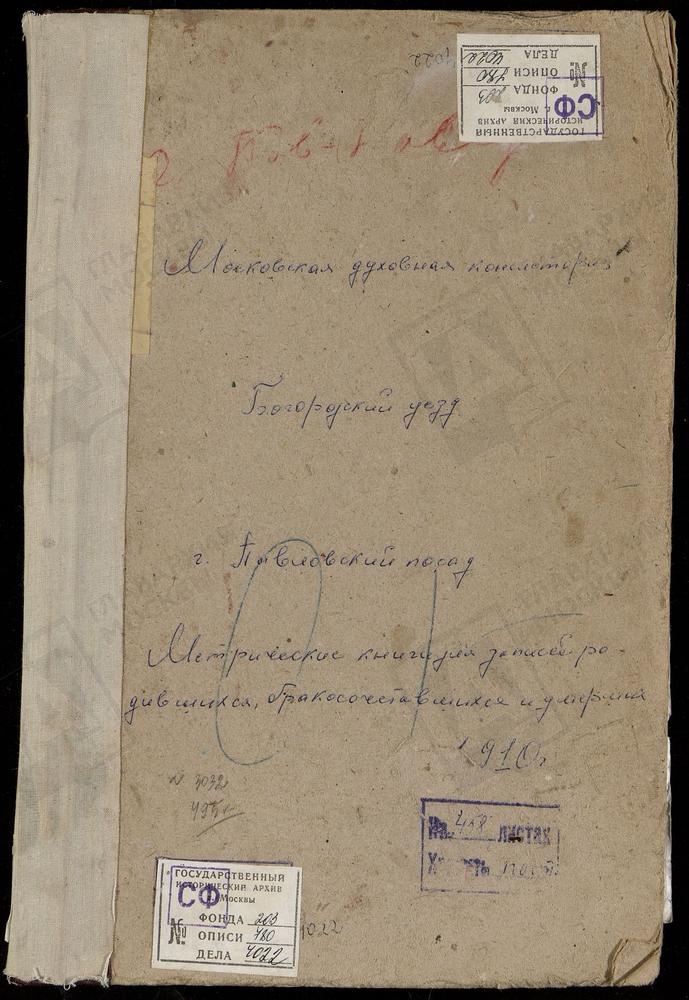 4022
ГОСУДАРСТВЕННЫЙ
ИСТОРИЧЕСКИЙ АРХИВ
г. Москвы
СФ
№
ФОНДА 203
ОПИСИ 780
ДЕЛА 4022
Московская духовная консистория
Богородский уезд
г. Павловский посад
Метрические книги для записи ро-
дившихся, бракосочетавшихся и умерших
1910г
N 3032
На 458 листах
Хранить
ГОСУДАРСТВЕННЫЙ
ИСТОРИЧЕСКИЙ АРХИВ
г. Москвы
СФ
№
ФОНДА 203
ОПИСИ 780
ДЕЛА 4022
4022